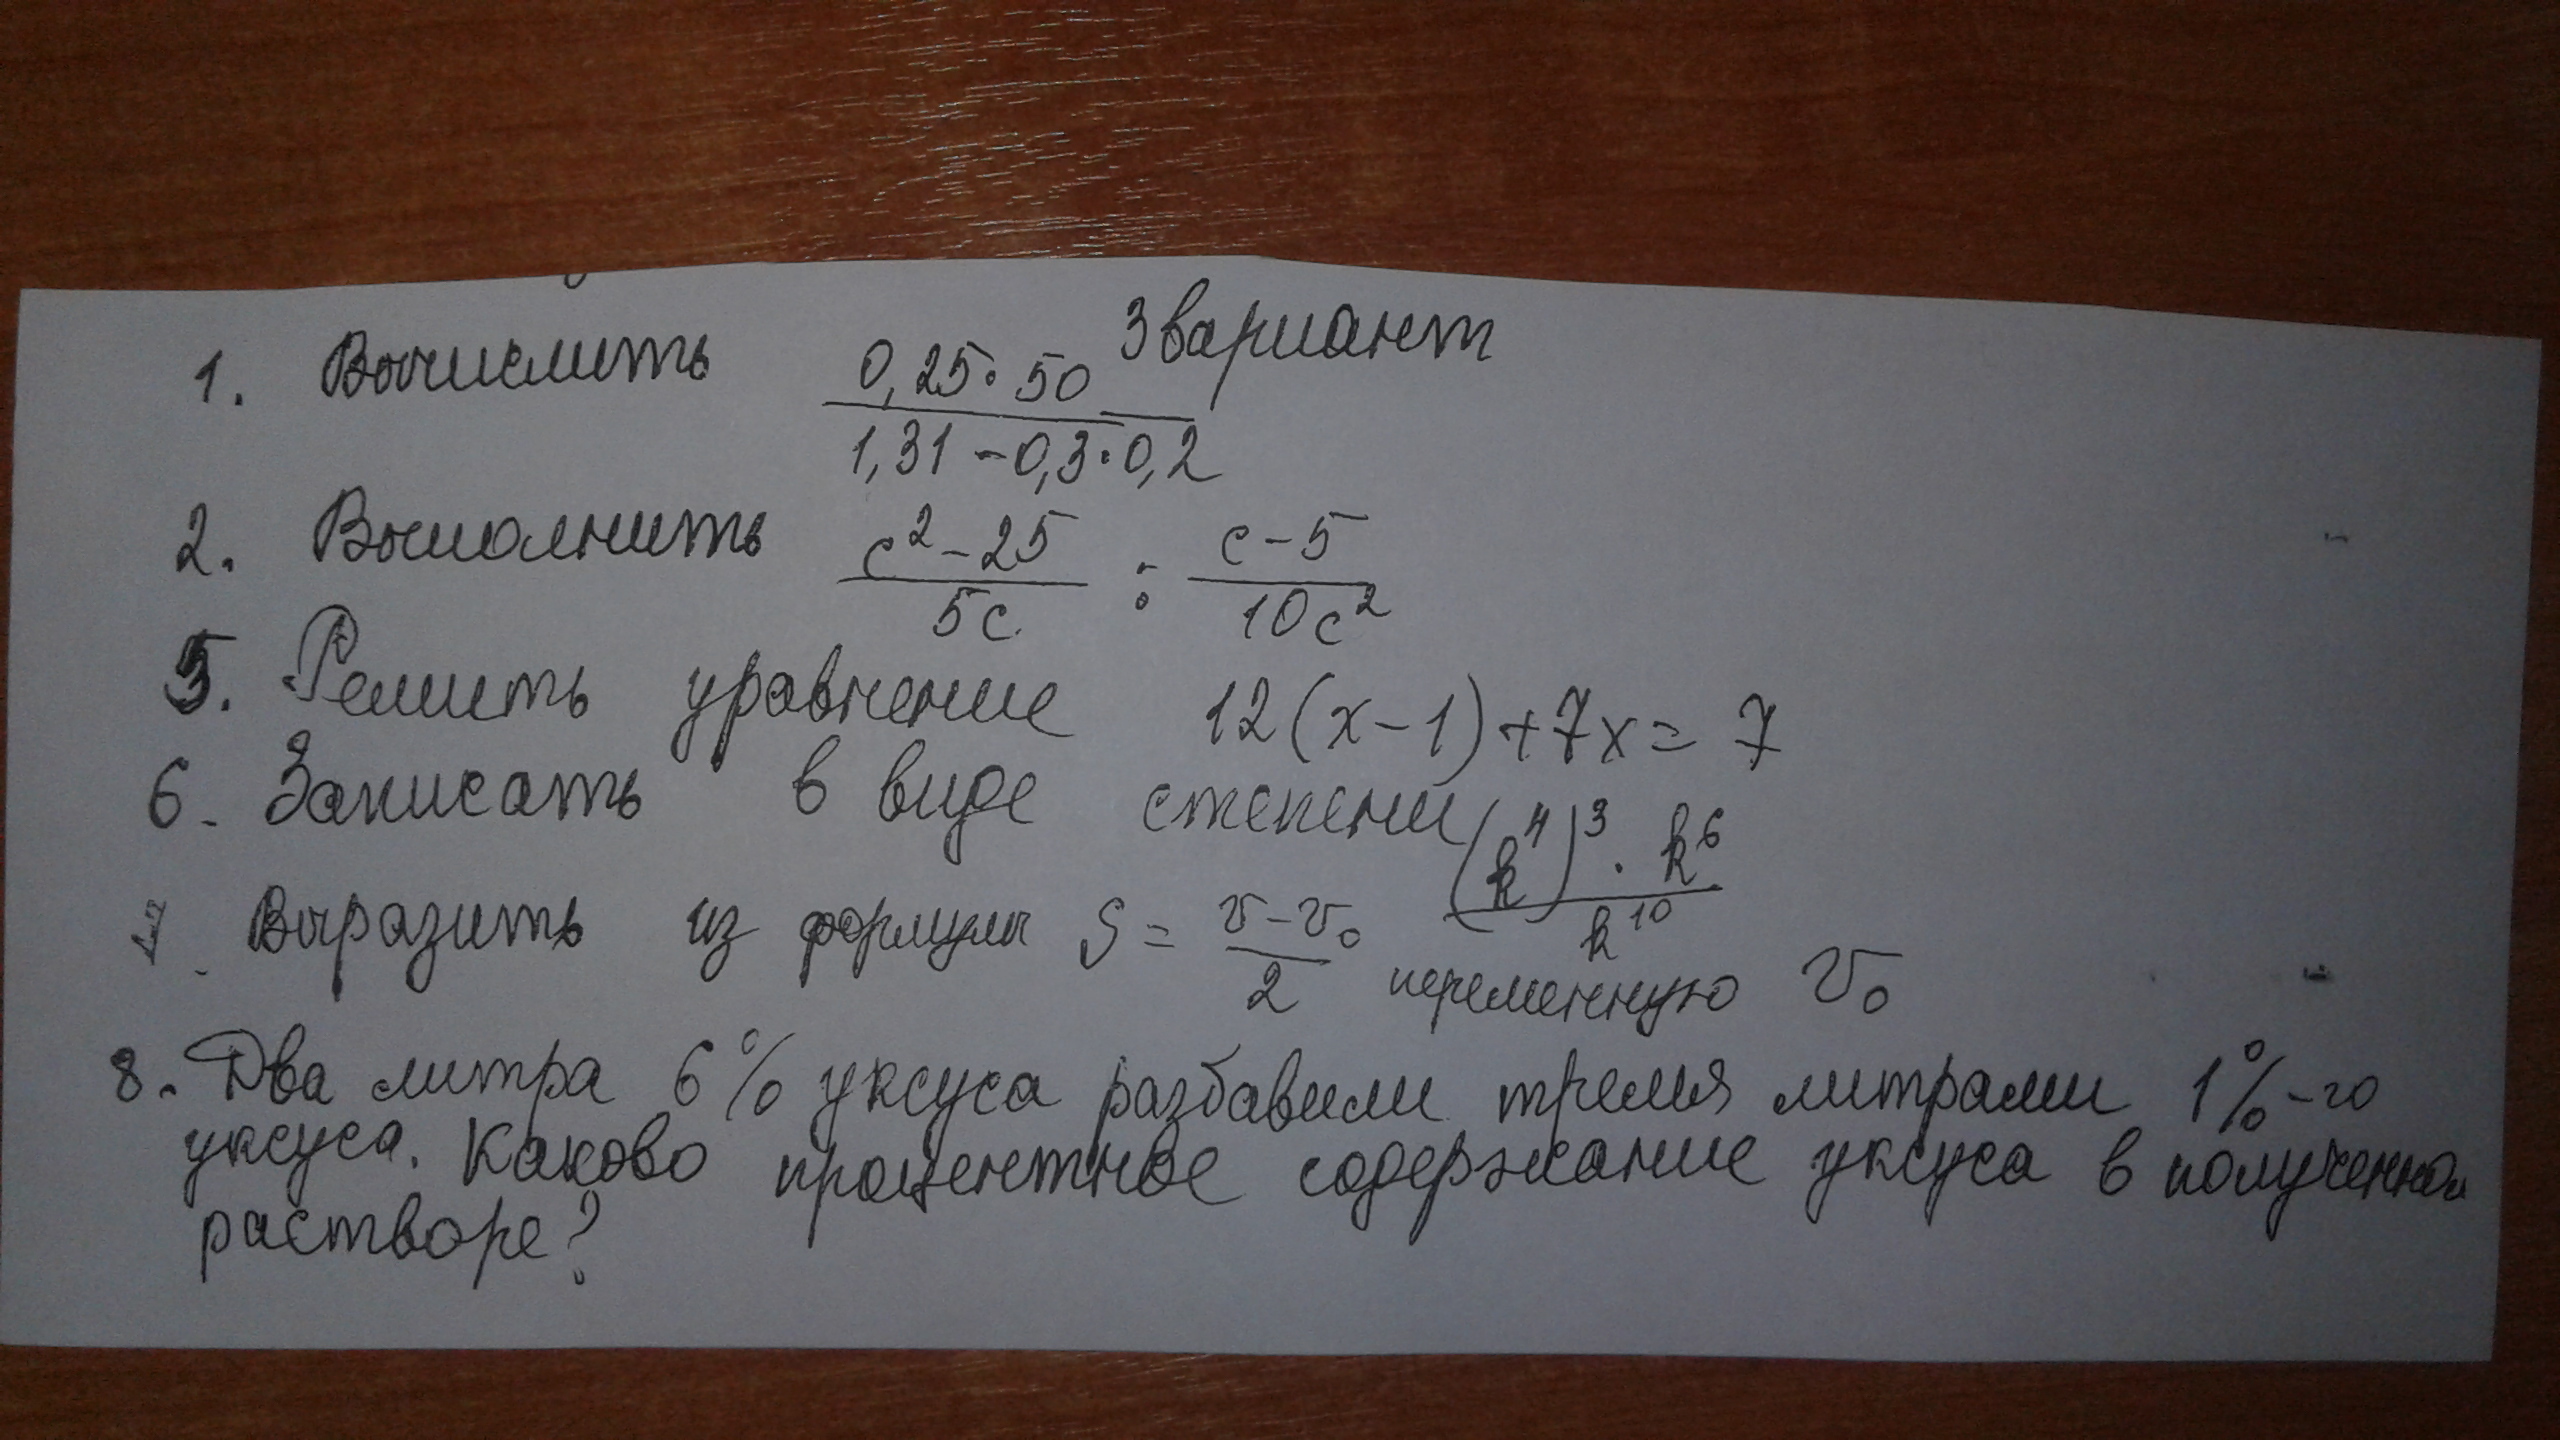 3 вариант
1. Вычислить 0,25·50 / 1,31 - 0,3·0,2
2. Выполнить c² - 25 / 5c : c - 5 / 10c²
5. Решить уравнение 12(x-1)+7x=7
6. Записать в виде степени (k⁴)³·k⁶ / k¹⁰
7. Выразить из формулы S = v-v₀ / 2 переменную v₀
8. Два литра 6% уксуса разбавили тремя литрами 1%-го
уксуса. Каково процентное содержание уксуса в полученном
растворе?